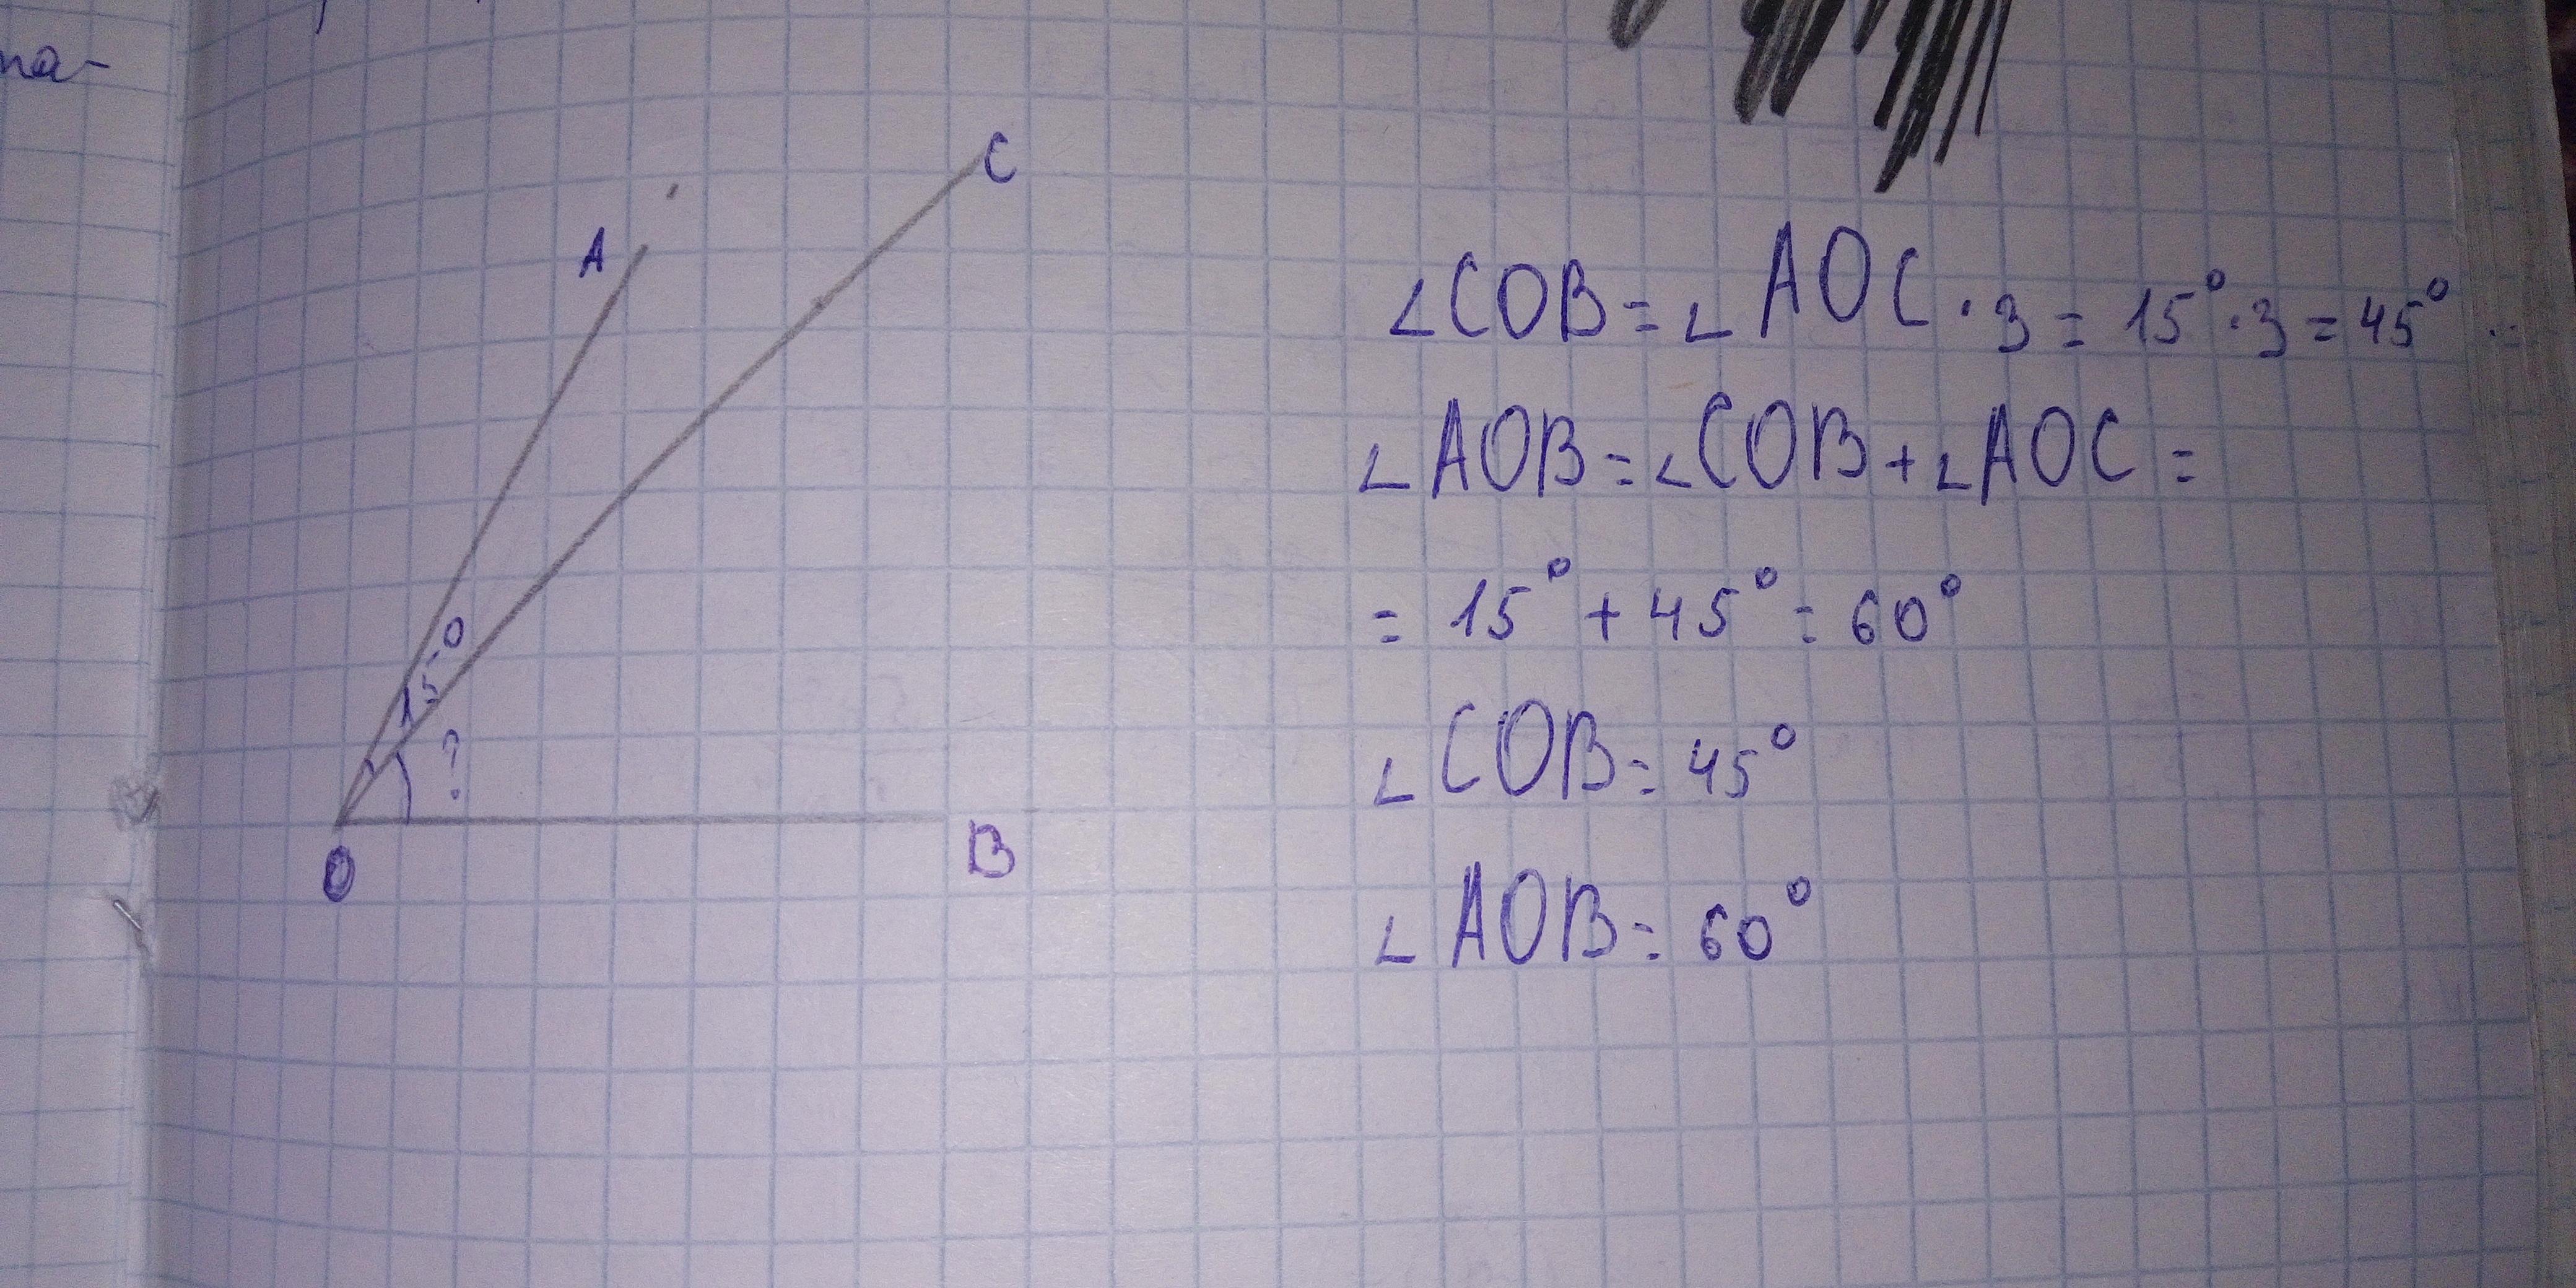 па-
C
A
15°
?
O
B
∠COB = ∠AOC · 3 = 15° · 3 = 45°
∠AOB = ∠COB + ∠AOC =
= 15° + 45° = 60°
∠COB = 45°
∠AOB = 60°